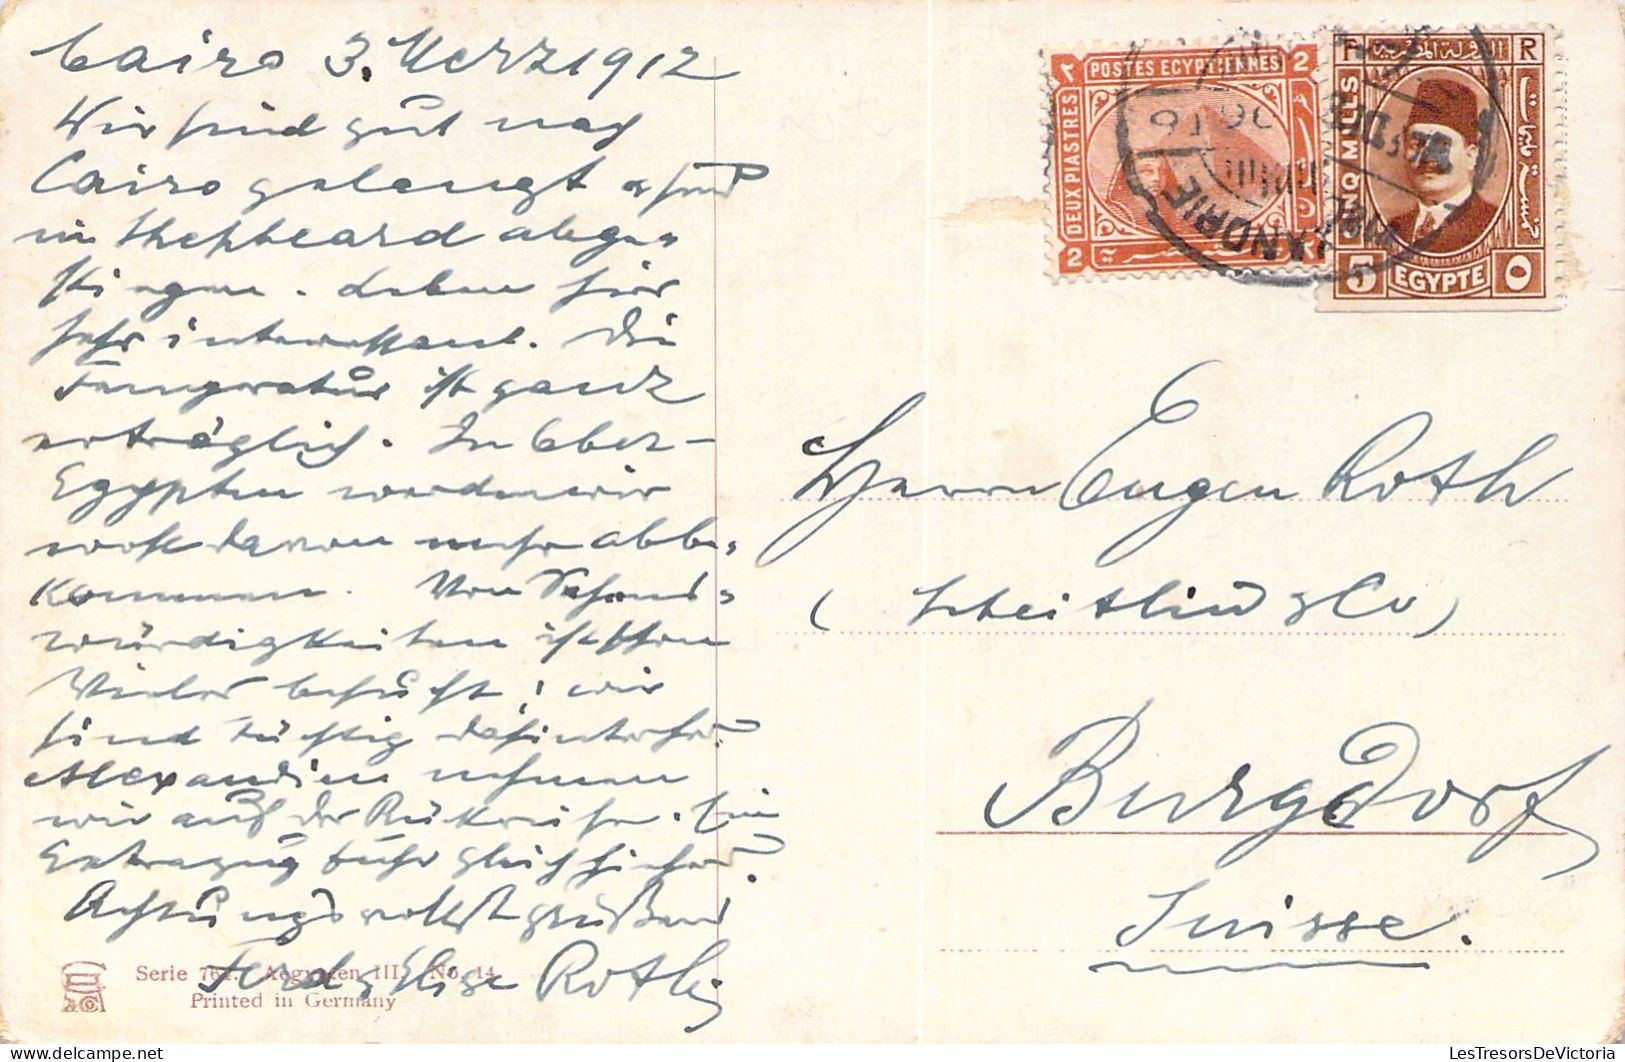 Cairo 3. Merz 1912
Wir sind gut nach
Cairo gelangt & sind
im Shepheard abge=
stiegen. Leben hier
sehr interessant. Die
Temperatur ist ganz
erträglich. In Ober-
Egypten werden wir
wohl davon mehr abbe=
kommen. Von Sehens=
würdigkeiten ist schon
Vieles besucht, wir
sind tüchtig dahinterher.
Alexandrien nehmen
wir auf der Rükreise. Ein
Extrazug fuhr gleich hierher.
Achtungsvollst grüßend
Ferd. Roth
Serie 761. Aegypten III. No. 14.
Printed in Germany
POSTES EGYPTIENNES
DEUX PIASTRES
2
2
F R
CINQ MILLS
5
EGYPTE
ALEXANDRIE
Herrn Eugen Roth
(Scheitlin & Co)
Burgdorf
Suisse.
LesTresorsDeVictoria